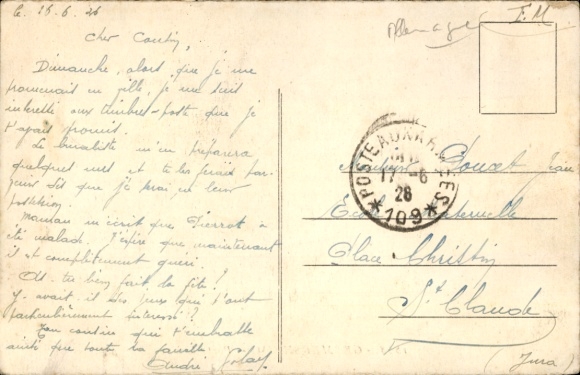 le 15.6.26
Cher Cousin,
Dimanche, alors que je me
promenais en ville, je me suis
intéressé aux timbres-poste que je
t'avais promis.
Le buraliste m'en préparera
quelques uns et te les ferai par-
venir dès que je serai en leur
possession.
Maman m'écrit que Pierrot a
été malade. J'espère que maintenant
il est complètement guéri.
As-tu bien fait la fête ?
Y avait-il des jeux qui t'ont
particulièrement intéressé ?
Ton cousin qui t'embrasse
ainsi que toute la famille
André
Allemagne
F. M
POSTE AUX ARMÉES
17 - 6
26
* 109 *
Monsieur Jean
École maternelle
Place Christin
St Claude
(Jura)